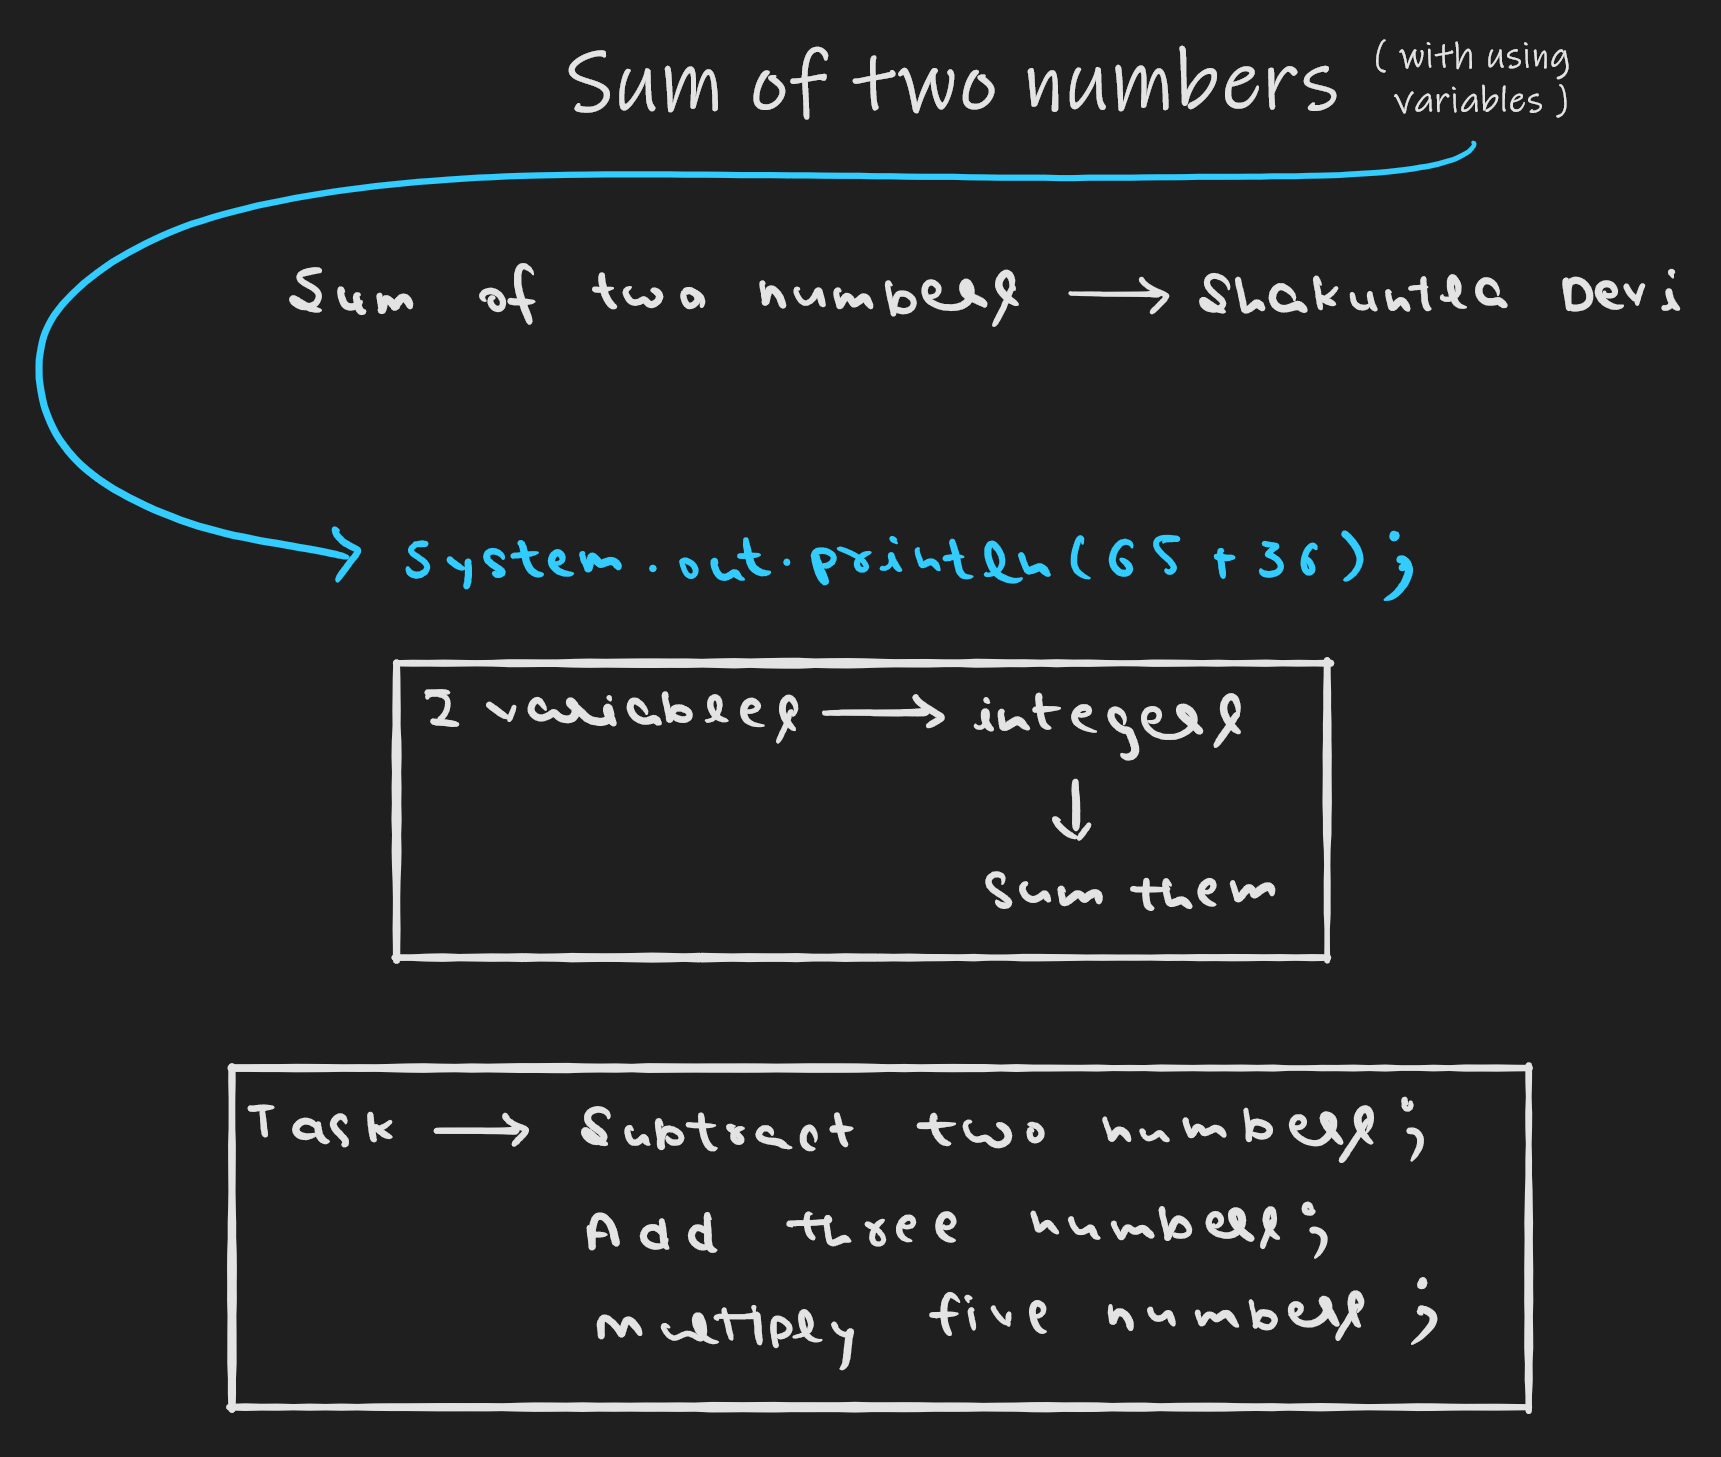 Sum of two numbers (with using
variables)
Sum of two numbers → Shakuntla Devi
System.out.println(65+36);
2 variables → integers
↓
Sum them
Task → Subtract two numbers;
Add three numbers;
multiply five numbers;